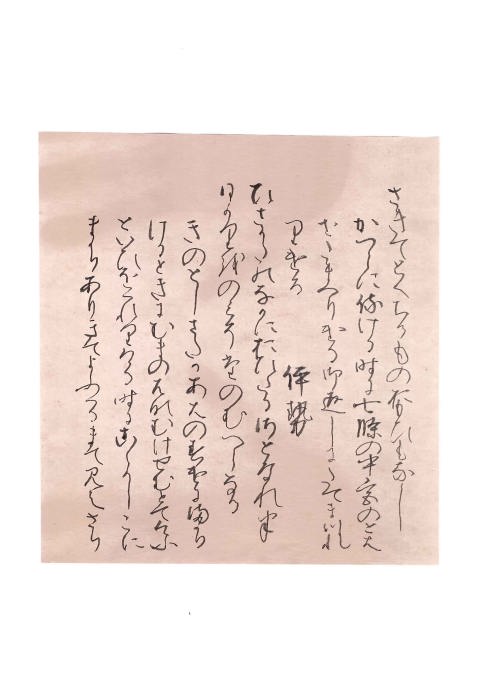 さきてとくちるもの思ひもなし
かつらに侍ける時に七條の中宮のとは
せたまへりける御返しにたてまつれ
りける
伊勢
ひさかたのなかにおひたるさとなれは
ひかりをのみそたのむへらなる
きのとしさたかあはのすけにまかり
けるときにむまのはなむけせむとてけふ
といひをくれりける時にこゝかしこに
まかりありきてよふくるまて見えさり